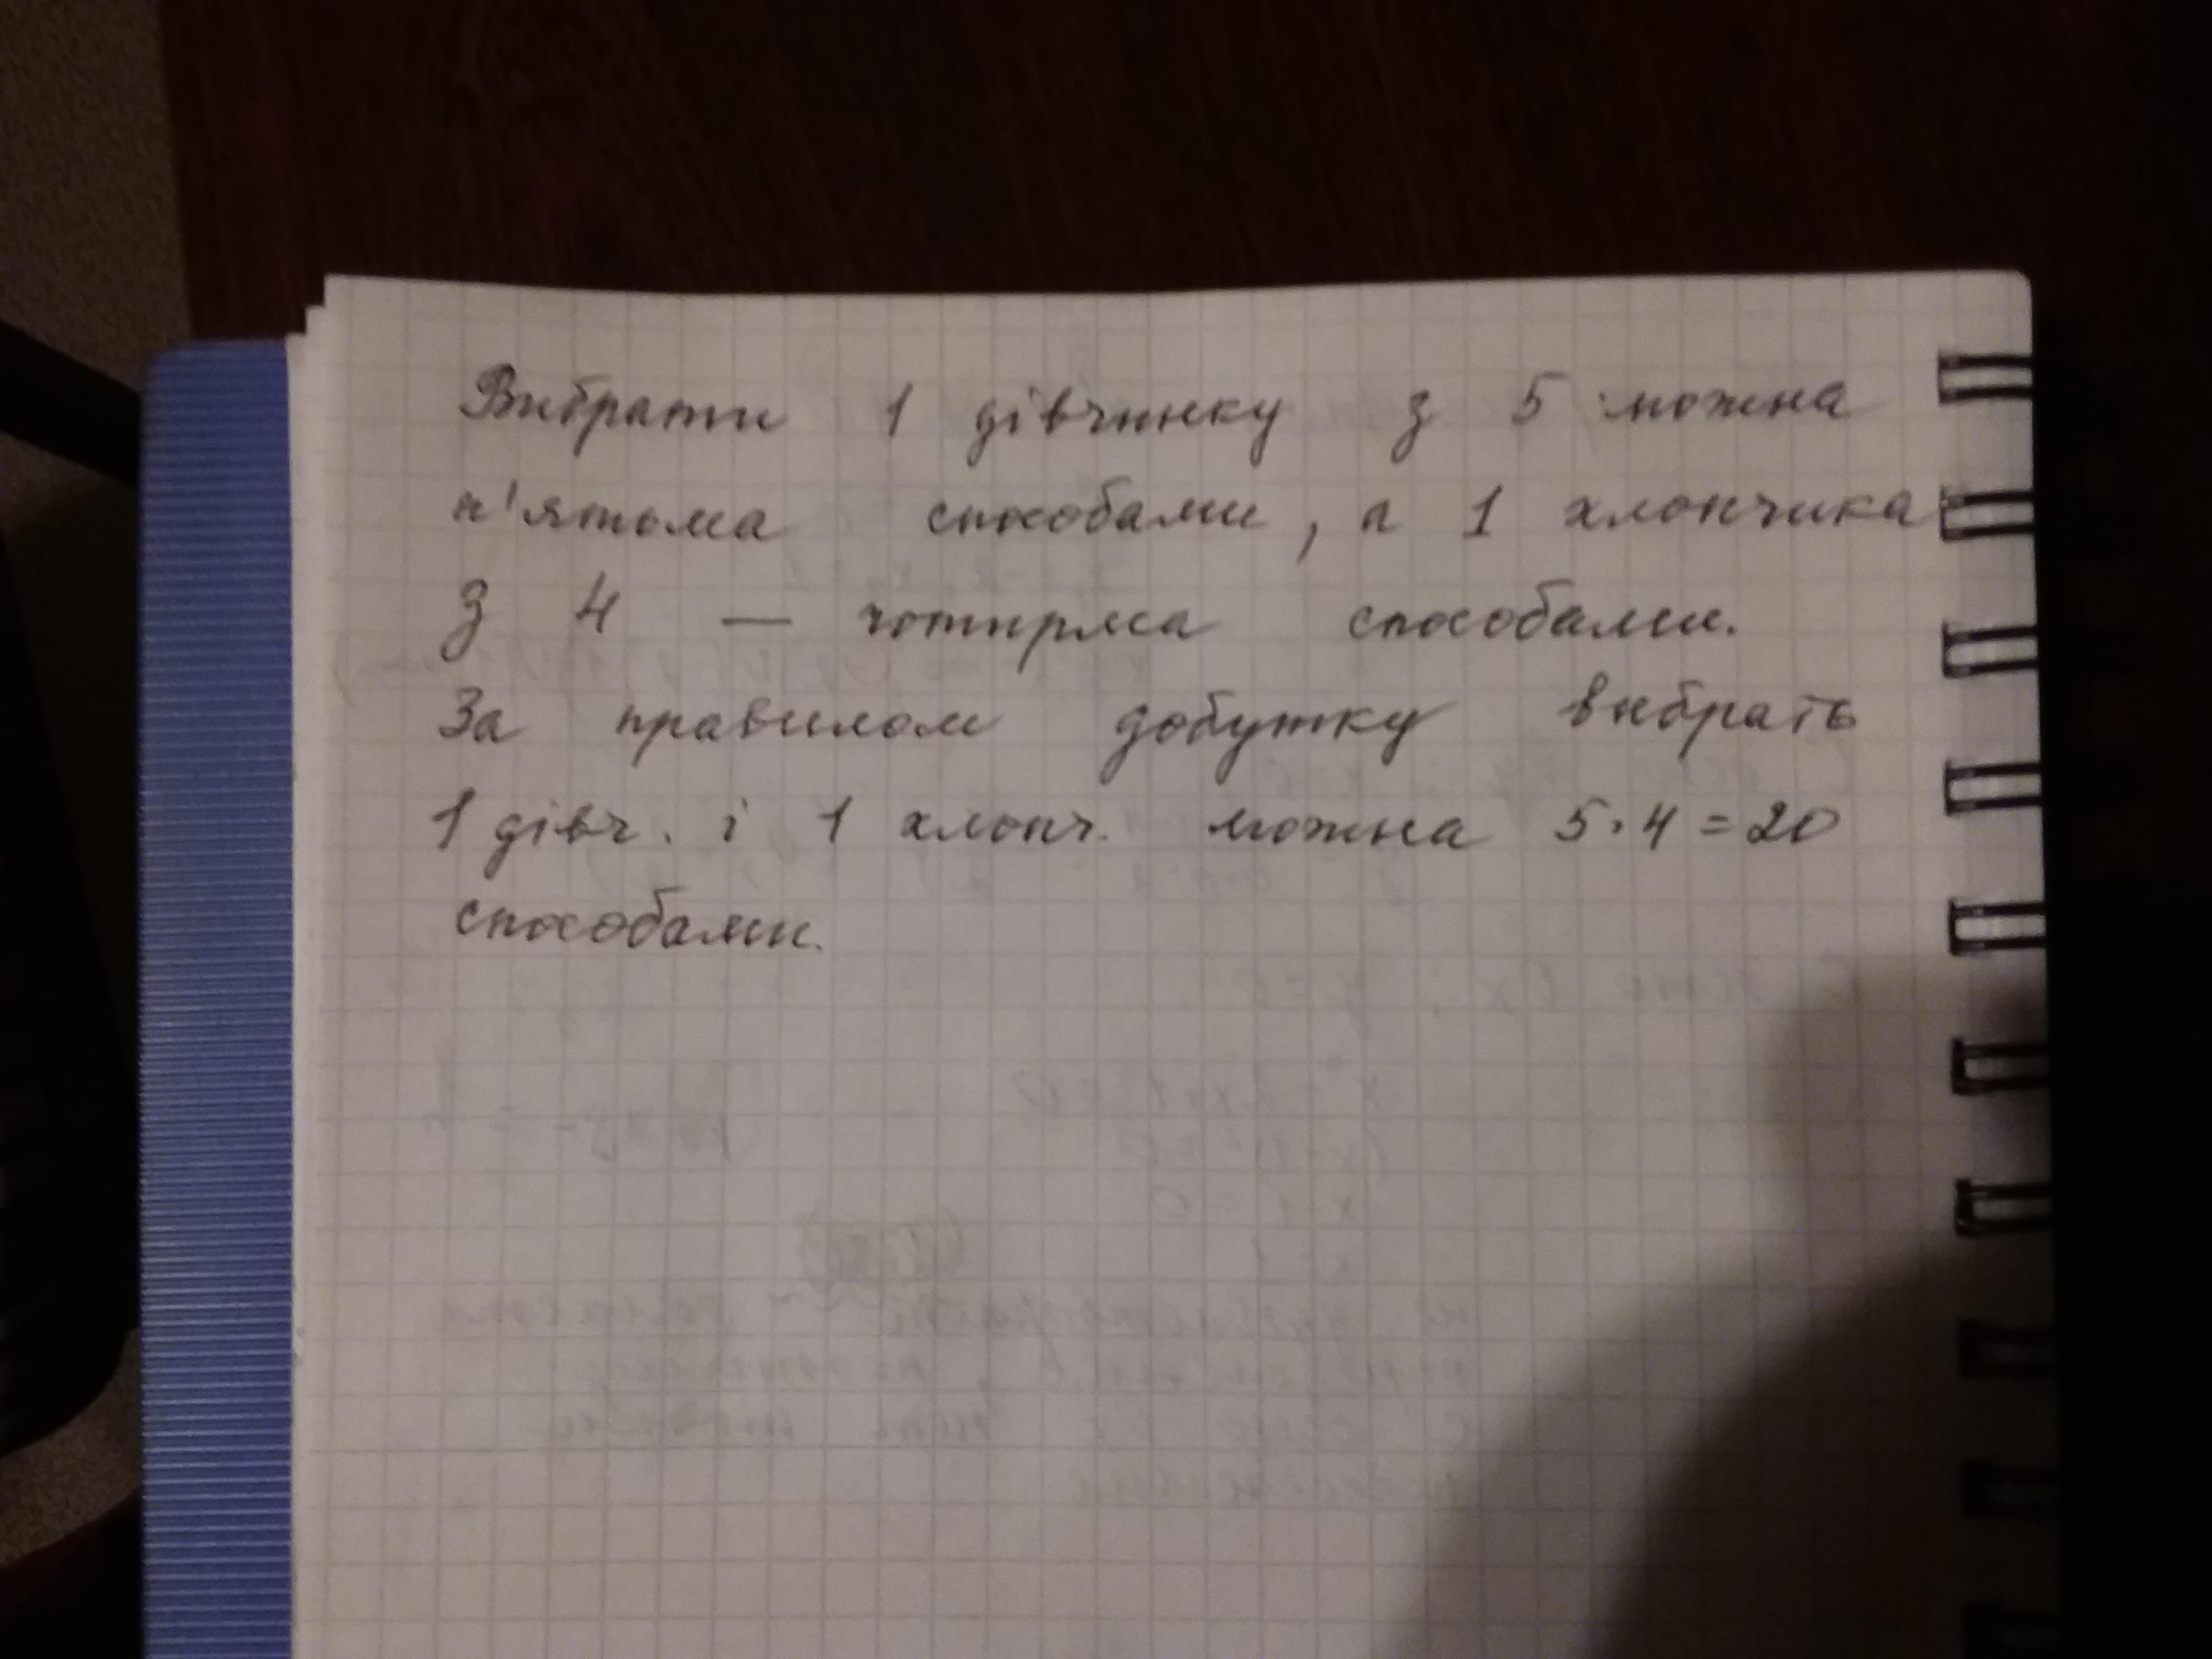 Вибрати 1 дівчинку з 5 можна
п'ятьма способами, а 1 хлопчика
з 4 — чотирма способами.
За правилом добутку вибрать
1 дівч. і 1 хлопч. можна 5·4=20
способами.